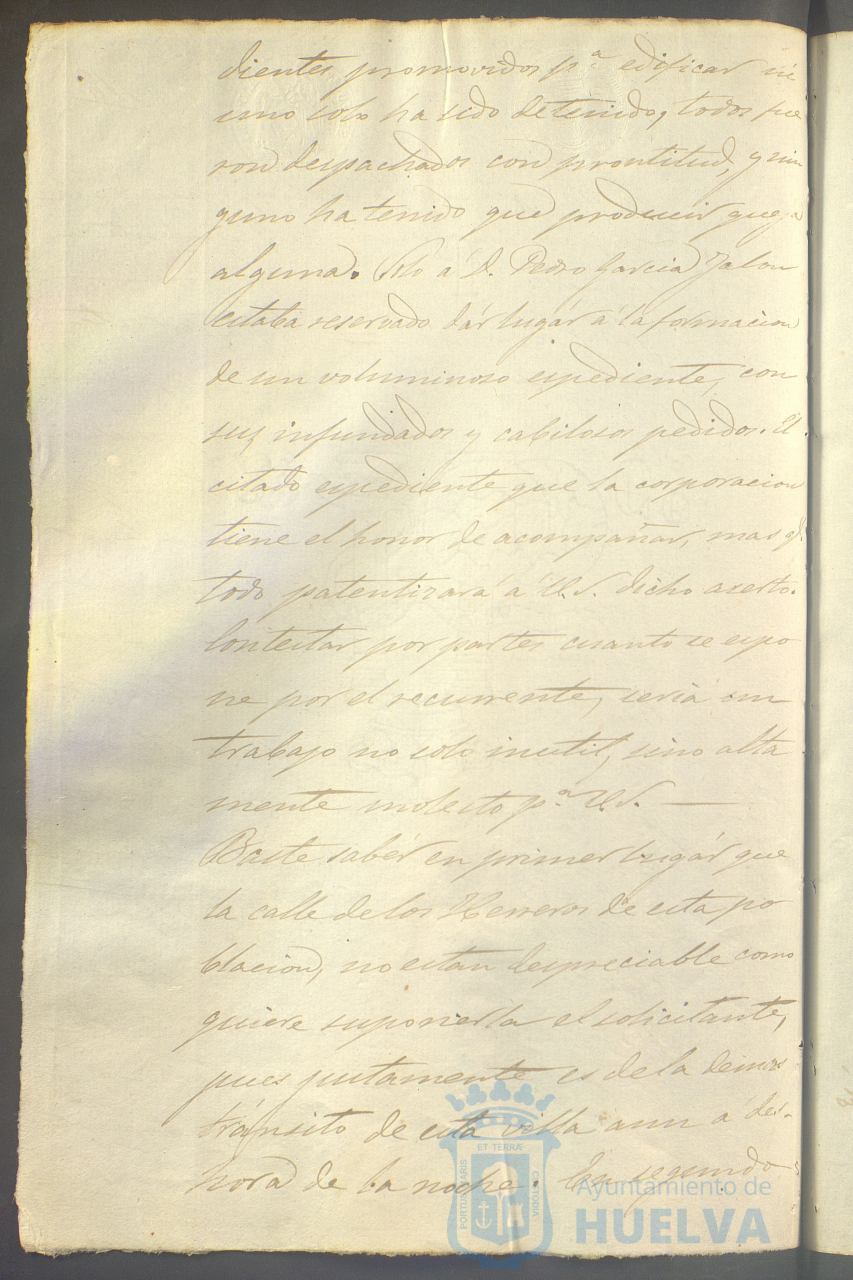 dientes promovidos p.a edificar ni
uno solo ha sido detenido, todos fue
ron despachados con prontitud, y nin
guno ha tenido que producir queja
alguna. Solo á D. Pedro Garcia Jalon
estaba reservado dár lugár á la formacion
de un voluminoso espediente, con
sus infundados y cabilosos pedidos. El
citado espediente que la corporacion
tiene el honor de acompañar, mas q.
todo patentizará á U.S. dicho aserto.
Contestar por partes cuanto se espo
ne por el recurrente, seria un
trabajo no solo inutil, sino alta
mente molesto p.a U.S. —
Baste sabér en primer lugár que
la calle de los Herreros de esta po
blacion, no es tan despreciable como
quiere suponerla el solicitante,
pues justamente es de la de mas
tránsito de esta villa aun á des-
hora de la noche. En segundo
ET TERRÆ
PORTUS MARIS
CUSTODIA
Ayuntamiento de
HUELVA